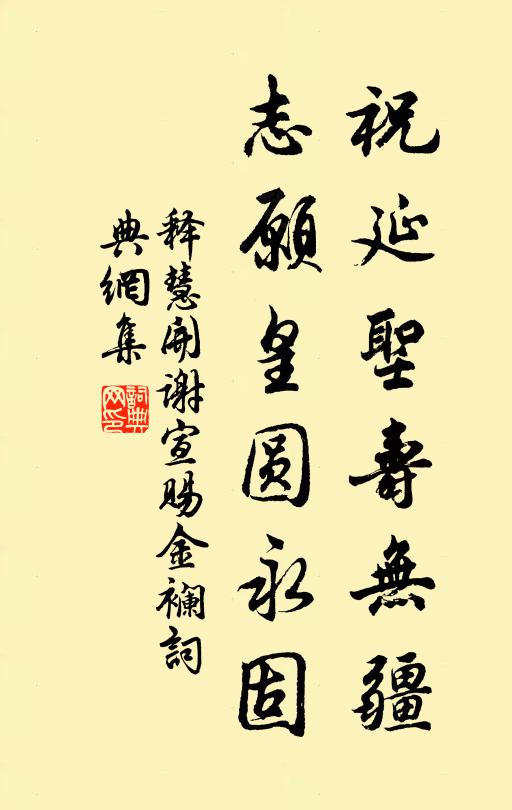 祝延聖壽無疆
志願皇圆永固
释慧開谢宣賜金襴詞
典網集
詞典網印